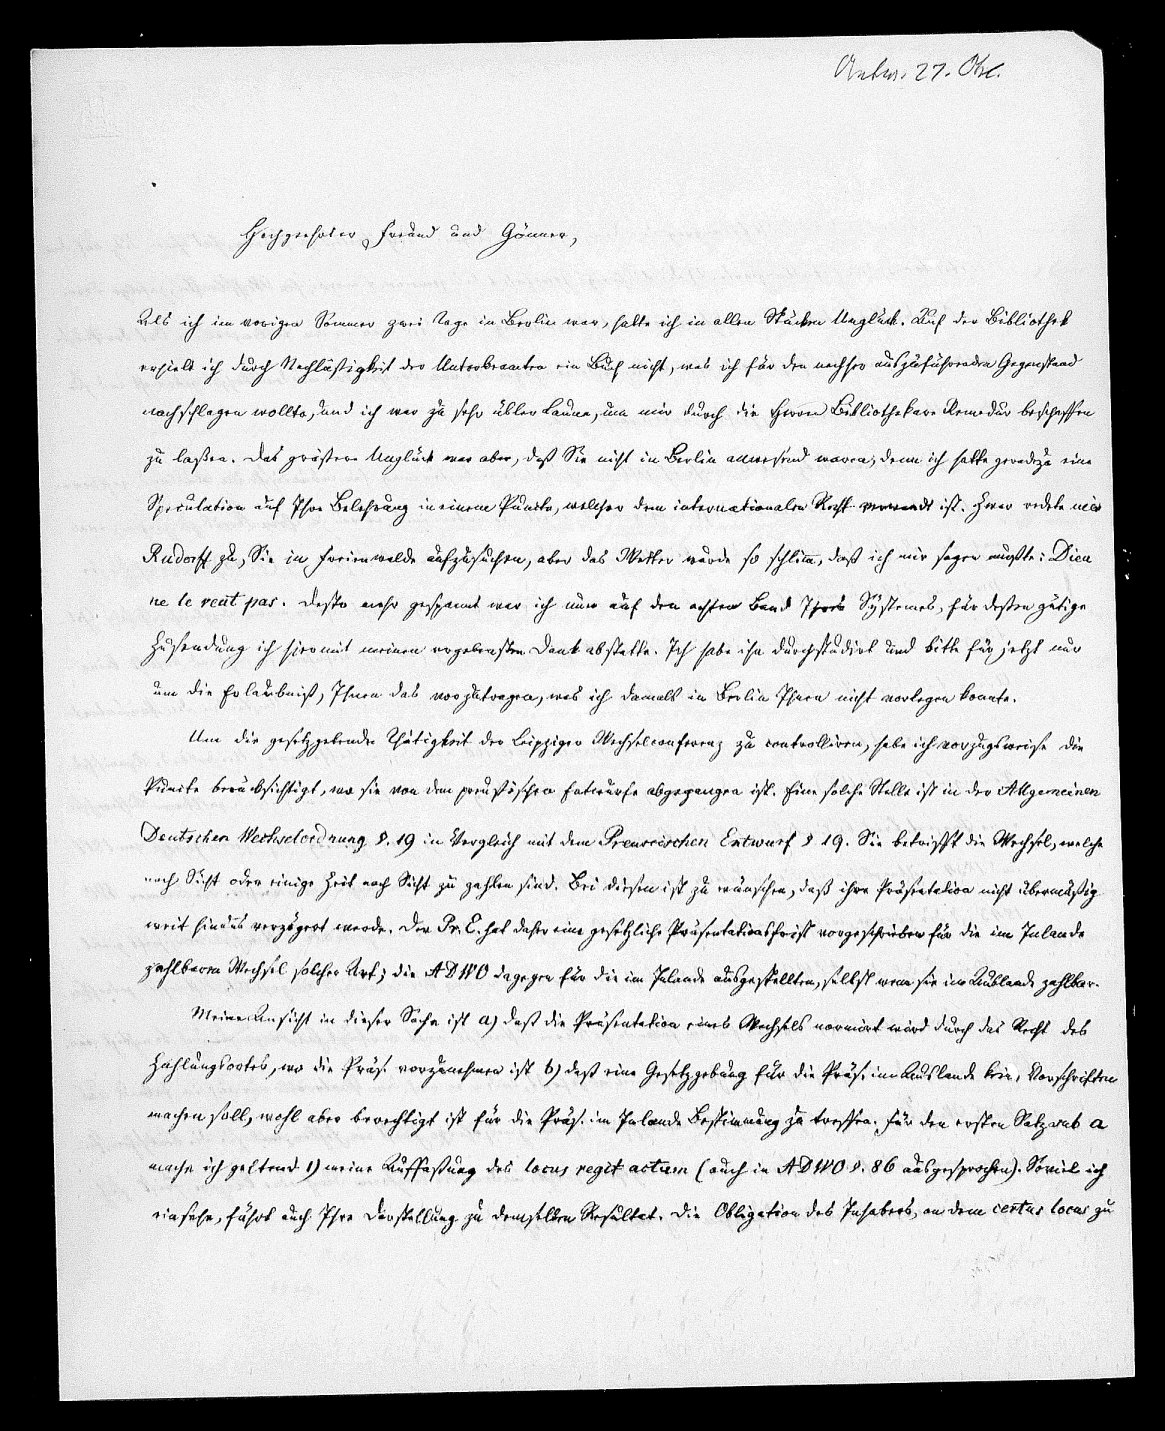 Antw. 27. Okt.
Hochgeehrter Freund und Gönner,
Als ich im vorigen Sommer zwei Tage in Berlin war, hatte ich in allen Stücken Unglück. Auf der Bibliothek
erhielt ich durch Nachläßigkeit der Unterbeamten ein Buch nicht, was ich für den nachher auszuführenden Gegenstand
nachschlagen wollte, und ich war zu sehr übler Laune, um mir durch die Herren Bibliothekare Remedur beschaffen
zu laßen. Das größere Unglück war aber, daß Sie nicht in Berlin anwesend waren, denn ich hatte geradezu eine
Speculation auf Ihre Belehrung in einem Puncte, welcher dem internationalen Recht verwandt ist. Zwar redete mir
Rudorff zu, Sie in Freienwalde aufzusuchen, aber das Wetter wurde so schlim, daß ich mir sagen mußte: Dieu
ne le veut pas. Desto mehr gespannt war ich nun auf den achten Band Ihres Systemes, für deßen gütige
Zusendung ich hiermit meinen ergebensten Dank abstatte. Ich habe ihn durchstudirt und bitte für jetzt nur
um die Erlaubniß, Ihnen das vorzutragen, was ich damals in Berlin Ihnen nicht vorlegen konnte.
Um die gesetzgebende Thätigkeit der Leipziger Wechselconferenz zu controlliren, habe ich vorzugsweise die
Puncte berücksichtigt, wo sie von dem preußischen Entwurfe abgegangen ist. Eine solche Stelle ist in der Allgemeinen
Deutschen Wechselordnung §. 19 in Vergleich mit dem Preussischen Entwurf § 19. Sie betrifft die Wechsel, welche
nach Sicht oder einige Zeit nach Sicht zu zahlen sind. Bei diesen ist zu wünschen, daß ihre Präsentation nicht übermäßig
weit hinaus verzögert werde. Der Pr. E. hat daher eine gesetzliche Präsentationsfrist vorgeschrieben für die im Inlande
zahlbaren Wechsel solcher Art; die ADWO dagegen für die im Inlande ausgestellten, selbst wenn sie im Auslande zahlbar.
Meine Ansicht in dieser Sache ist a) daß die Präsentation eines Wechsels normirt wird durch das Recht des
Zahlungsortes, wo die Präs. vorzunehmen ist b) daß eine Gesetzgebung für die Präs. im Auslande keine Vorschriften
machen soll, wohl aber berechtigt ist für die Präs. im Inlande Bestimmung zu treffen. Für den ersten Satz sub a
mache ich geltend 1) meine Auffaßung des locus regit actum (auch in ADWO §. 86 ausgesprochen). Soviel ich
einsehe, führt auch Ihre Darstellung zu demselben Resultat. Die Obligation des Inhabers, an dem certus locus zu